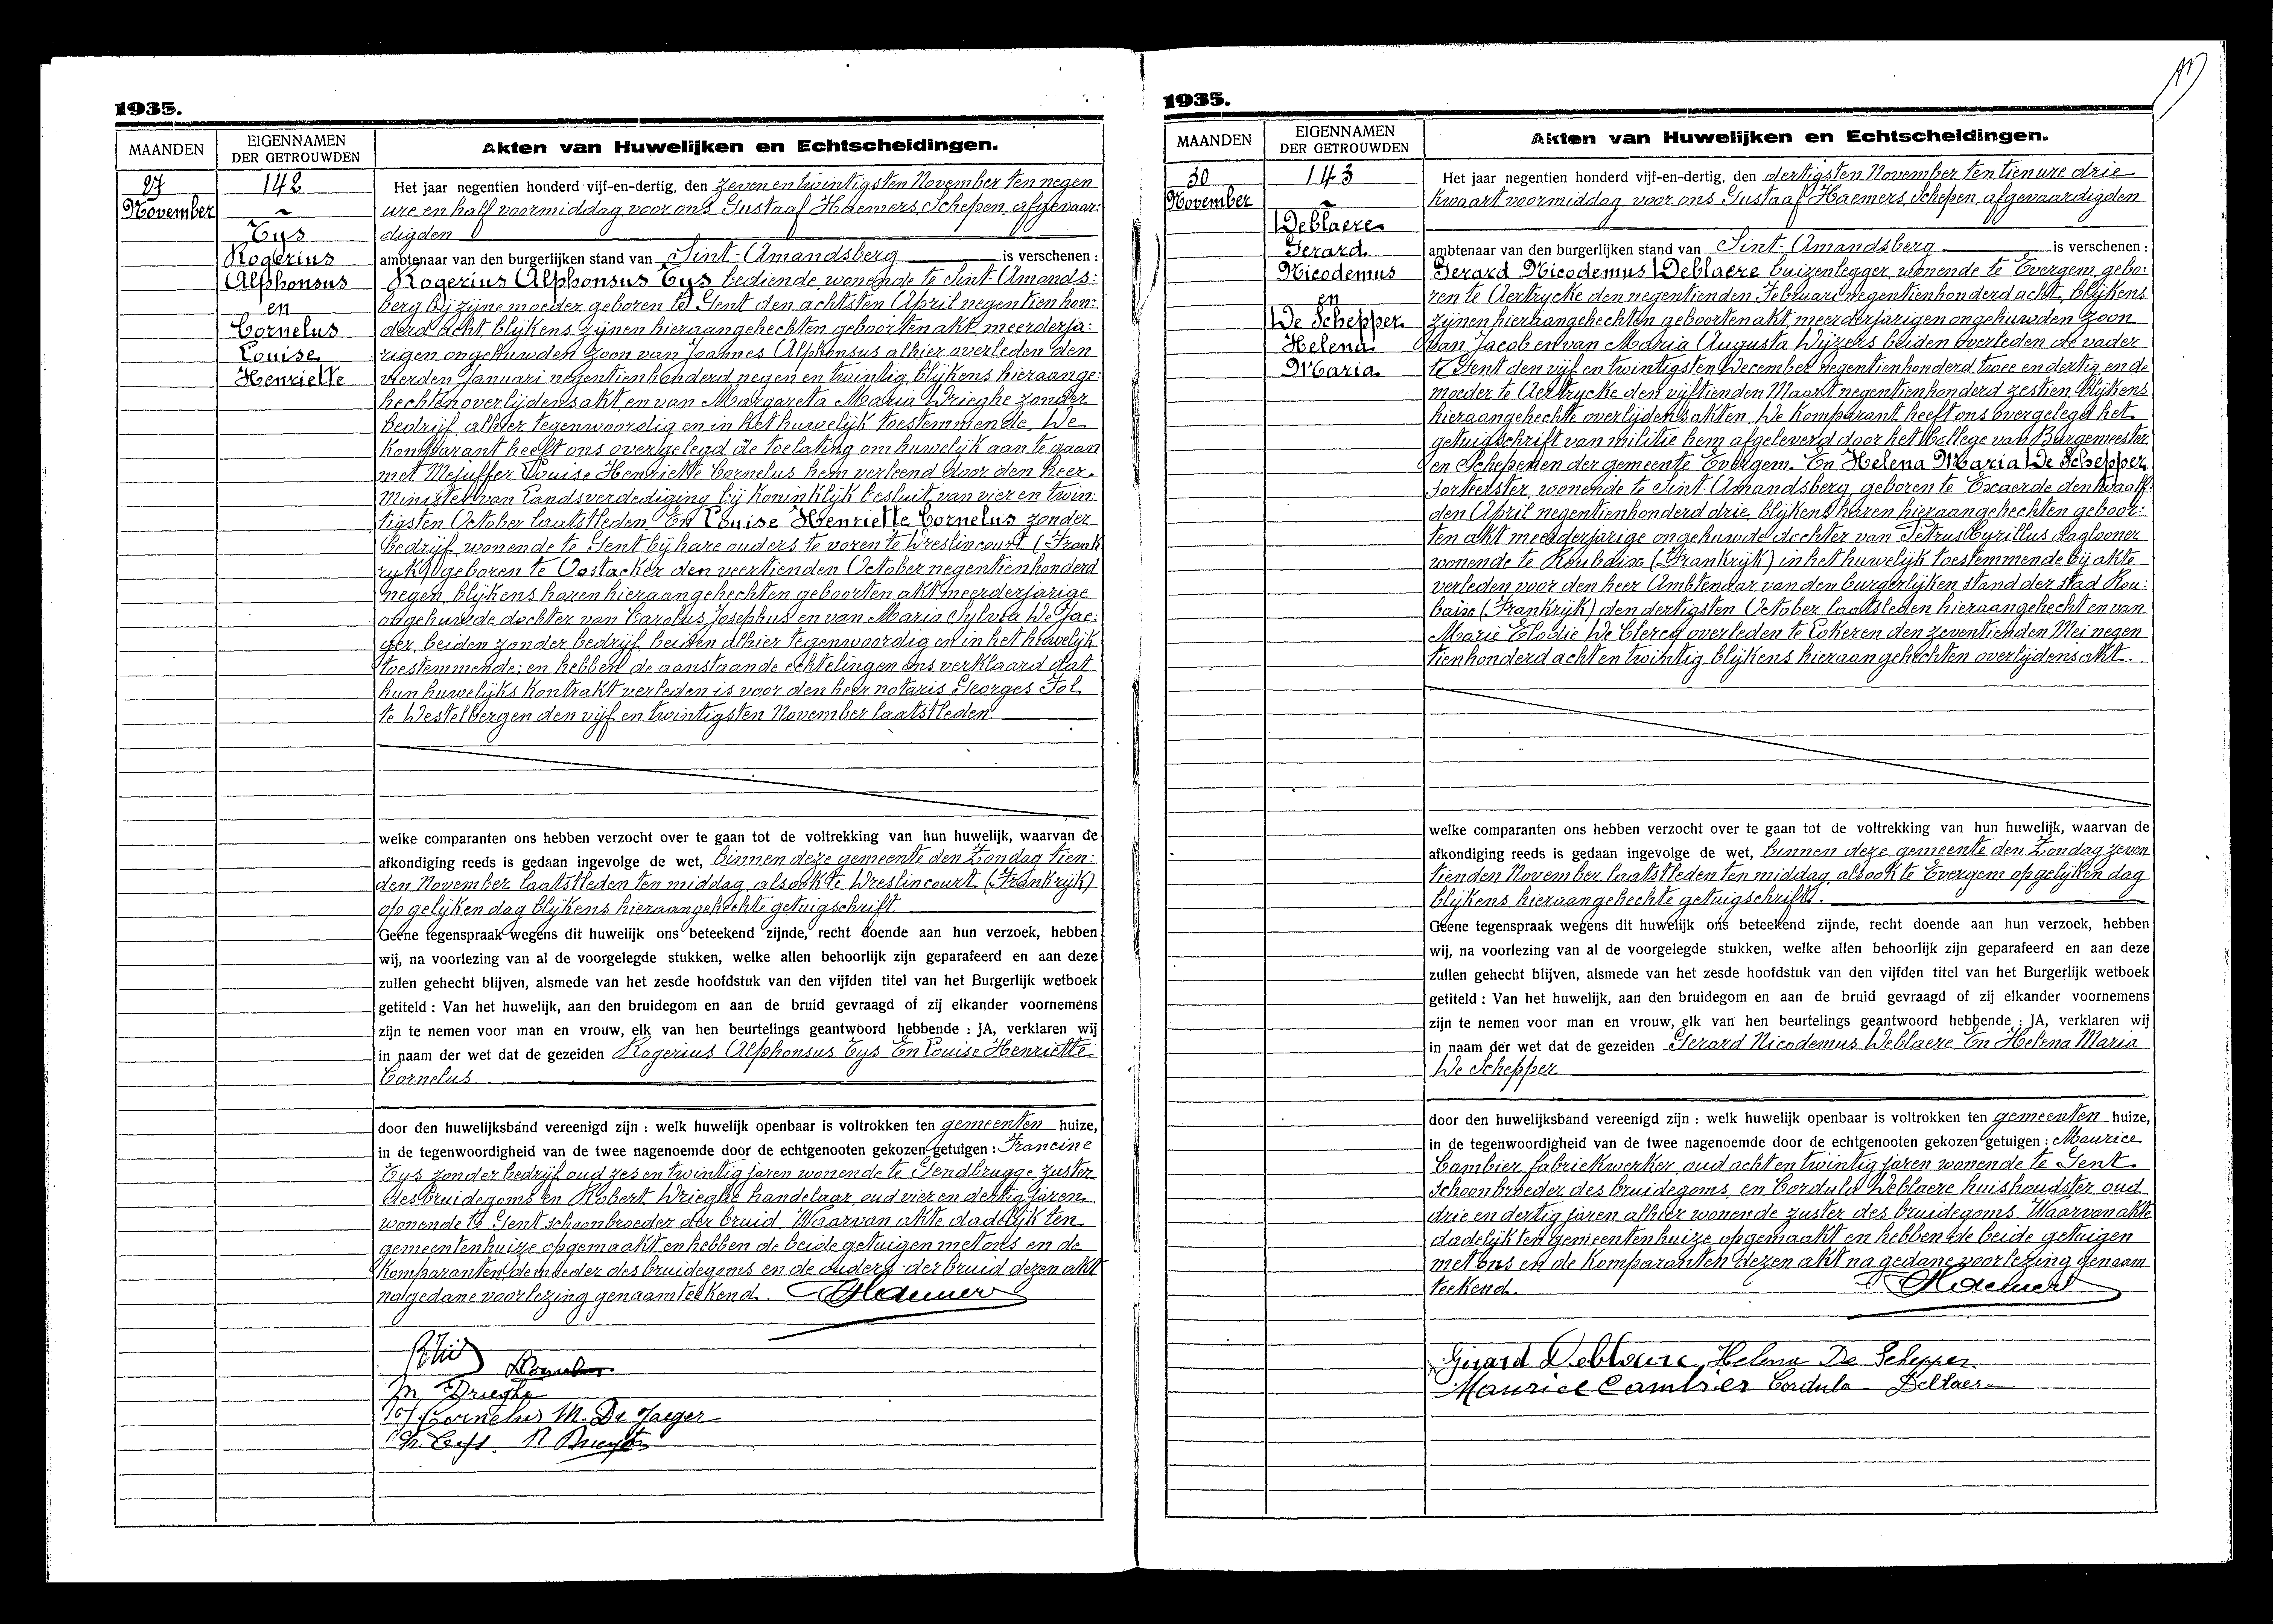 1935.
MAANDEN
EIGENNAMEN
DER GETROUWDEN
Akten van Huwelijken en Echtscheidingen.
27
November
142
Eys
Rogerius
Alphonsus
en
Cornelus
Louise
Henriette
Het jaar negentien honderd vijf-en-dertig, den zeven en twintigsten November ten negen
ure en half voormiddag voor ons Gustaaf Haemers, Schepen, afgevaar:
digden
ambtenaar van den burgerlijken stand van Sint-Amandsberg is verschenen:
Rogerius Alphonsus Eys bediende, wonende te Sint-Amands:
berg bij zijne moeder, geboren te Gent den achtsten April negentienhon:
derd acht, blijkens zijnen hieraangehechten geboortenakt, meerderja:
rigen ongehuwden zoon van Joannes Alphonsus alhier overleden den
vierden Januari negentienhonderd negen en twintig, blijkens hieraange:
hechten overlijdensakt en van Margareta Maria Drieghe zonder
bedrijf, alhier tegenwoordig en in het huwelijk toestemmende. De
Komparant heeft ons overgelegd de toelating om huwelijk aan te gaan
met Mejuffer Louise Henriette Cornelus hem verleend door den heer
Minister van Landsverdediging bij Koninklijk besluit van vier en twin:
tigsten October laatstleden. En Louise Henriette Cornelus zonder
bedrijf, wonende te Gent bij hare ouders te voren te Dreslincourt (Frank
ryk) geboren te Oostacker den veertienden October negentienhonderd
negen, blijkens haren hieraangehechten geboorten akt meerderjarige
ongehuwde dochter van Carolus Josephus en van Maria Sylvia De Jae:
ger, beiden zonder bedrijf, beiden alhier tegenwoordig en in het huwelijk
toestemmende; en hebben de aanstaande echtelingen ons verklaard dat
hun huwelijks Kontrakt verleden is voor den heer notaris Georges Fol
te Destelbergen den vijf en twintigsten November laatstleden.
welke comparanten ons hebben verzocht over te gaan tot de voltrekking van hun huwelijk, waarvan de
afkondiging reeds is gedaan ingevolge de wet, binnen deze gemeente den Zondag tien:
den November laatstleden ten middag, alsook te Dreslincourt (Frankrijk)
op gelijken dag blijkens hieraangehechte getuigschrift.
Geene tegenspraak wegens dit huwelijk ons beteekend zijnde, recht doende aan hun verzoek, hebben
wij, na voorlezing van al de voorgelegde stukken, welke allen behoorlijk zijn geparafeerd en aan deze
zullen gehecht blijven, alsmede van het zesde hoofdstuk van den vijfden titel van het Burgerlijk wetboek
getiteld : Van het huwelijk, aan den bruidegom en aan de bruid gevraagd of zij elkander voornemens
zijn te nemen voor man en vrouw, elk van hen beurtelings geantwoord hebbende : JA, verklaren wij
in naam der wet dat de gezeiden Rogerius Alphonsus Eys En Louise Henriette
Cornelus
door den huwelijksband vereenigd zijn : welk huwelijk openbaar is voltrokken ten gemeenten huize,
in de tegenwoordigheid van de twee nagenoemde door de echtgenooten gekozen getuigen : Francine
Eys zonder bedrijf oud zes en twintig jaren wonende te Gendbrugge, zuster
des bruidegoms en Robert Drieghe handelaar, oud vier en dertig jaren
wonende te Gent schoonbroeder der bruid. Waarvan akte dadelijk ten
gemeentenhuize opgemaakt en hebben de beide getuigen met ons en de
Komparanten de moeder des bruidegoms en de ouders der bruid dezen akt
na gedane voorlezing genaamteekend. Haemers
LCornelus
M Drieghe
Cornelus M. De Jaeger
Fr. Eys. R Drieghe
1935.
MAANDEN
EIGENNAMEN
DER GETROUWDEN
Akten van Huwelijken en Echtscheidingen.
30
November
143
Deblaere
Gerard
Nicodemus
en
De Schepper
Helena
Maria
Het jaar negentien honderd vijf-en-dertig, den dertigsten November ten tien ure drie
kwaart voormiddag, voor ons Gustaaf Haemers, Schepen, afgevaardigden
ambtenaar van den burgerlijken stand van Sint-Amandsberg is verschenen :
Gerard Nicodemus Deblaere buizenlegger, wonende te Evergem, gebo:
ren te Aertrycke den negentienden Februari negentienhonderd acht, blijkens
zijnen hieraangehechten geboortenakt meerderjarigen ongehuwden zoon
van Jacob en van Maria Augusta Wijzers beiden overleden de vader
te Gent den vijf en twintigsten December negentienhonderd twee en dertig en de
moeder te Aertrycke den vijftienden Maart negentienhonderd zestien, blijkens
hieraangehechte overlijdensakten. De Komparant heeft ons overgelegd het
getuigschrift van militie hem afgeleverd door het College van Burgemeester
en Schepenen der gemeente Evergem. En Helena Maria De Schepper
sorteerster, wonende te Sint-Amandsberg, geboren te Exaerde den twaalf:
den April negentienhonderd drie, blijkens haren hieraangehechten geboor:
ten akt meerderjarige ongehuwde dochter van Petrus Cyrillus dagloner
wonende te Roubaix (Frankrijk) in het huwelijk toestemmende bij akte
verleden voor den heer Ambtenaar van den burgerlijken stand der stad Rou:
baix (Frankrijk) den dertigsten October laatsleden hieraangehecht en van
Marie Elodie De Clercq overleden te Lokeren den zeventienden Mei negen
tienhonderd acht en twintig blijkens hieraangehechten overlijdensakt.
welke comparanten ons hebben verzocht over te gaan tot de voltrekking van hun huwelijk, waarvan de
afkondiging reeds is gedaan ingevolge de wet, binnen deze gemeente den Zondag zeven
tienden November laatstleden ten middag, alsook te Evergem op gelijken dag
blijkens hieraangehechte getuigschrift.
Geene tegenspraak wegens dit huwelijk ons beteekend zijnde, recht doende aan hun verzoek, hebben
wij, na voorlezing van al de voorgelegde stukken, welke allen behoorlijk zijn geparafeerd en aan deze
zullen gehecht blijven, alsmede van het zesde hoofdstuk van den vijfden titel van het Burgerlijk wetboek
getiteld : Van het huwelijk, aan den bruidegom en aan de bruid gevraagd of zij elkander voornemens
zijn te nemen voor man en vrouw, elk van hen beurtelings geantwoord hebbende : JA, verklaren wij
in naam der wet dat de gezeiden Gerard Nicodemus Deblaere En Helena Maria
De Schepper
door den huwelijksband vereenigd zijn : welk huwelijk openbaar is voltrokken ten gemeenten huize,
in de tegenwoordigheid van de twee nagenoemde door de echtgenooten gekozen getuigen : Maurice
Cambier fabriekwerker, oud acht en twintig jaren wonende te Gent
schoonbroeder des bruidegoms, en Cordula Deblaere huishoudster oud
drie en dertig jaren alhier wonende zuster des bruidegoms Waarvan akte
dadelijk ten gemeentenhuize opgemaakt en hebben de beide getuigen
met ons en de Komparanten dezen akt na gedane voorlezing genaam
teekend. Haemers
Gérard Deblaere Helena De Schepper
Maurice Cambier Cordula Deblaere